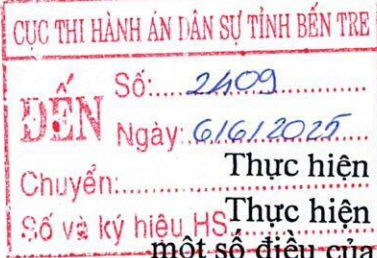 CỤC THI HÀNH ÁN DÂN SỰ TỈNH BẾN TRE
ĐẾN
Số:.....2409...............
Ngày:.6/6/2025....
Chuyển:...............
Thực hiện
Số và ký hiệu HS...............
Thực hiện
một số điều của